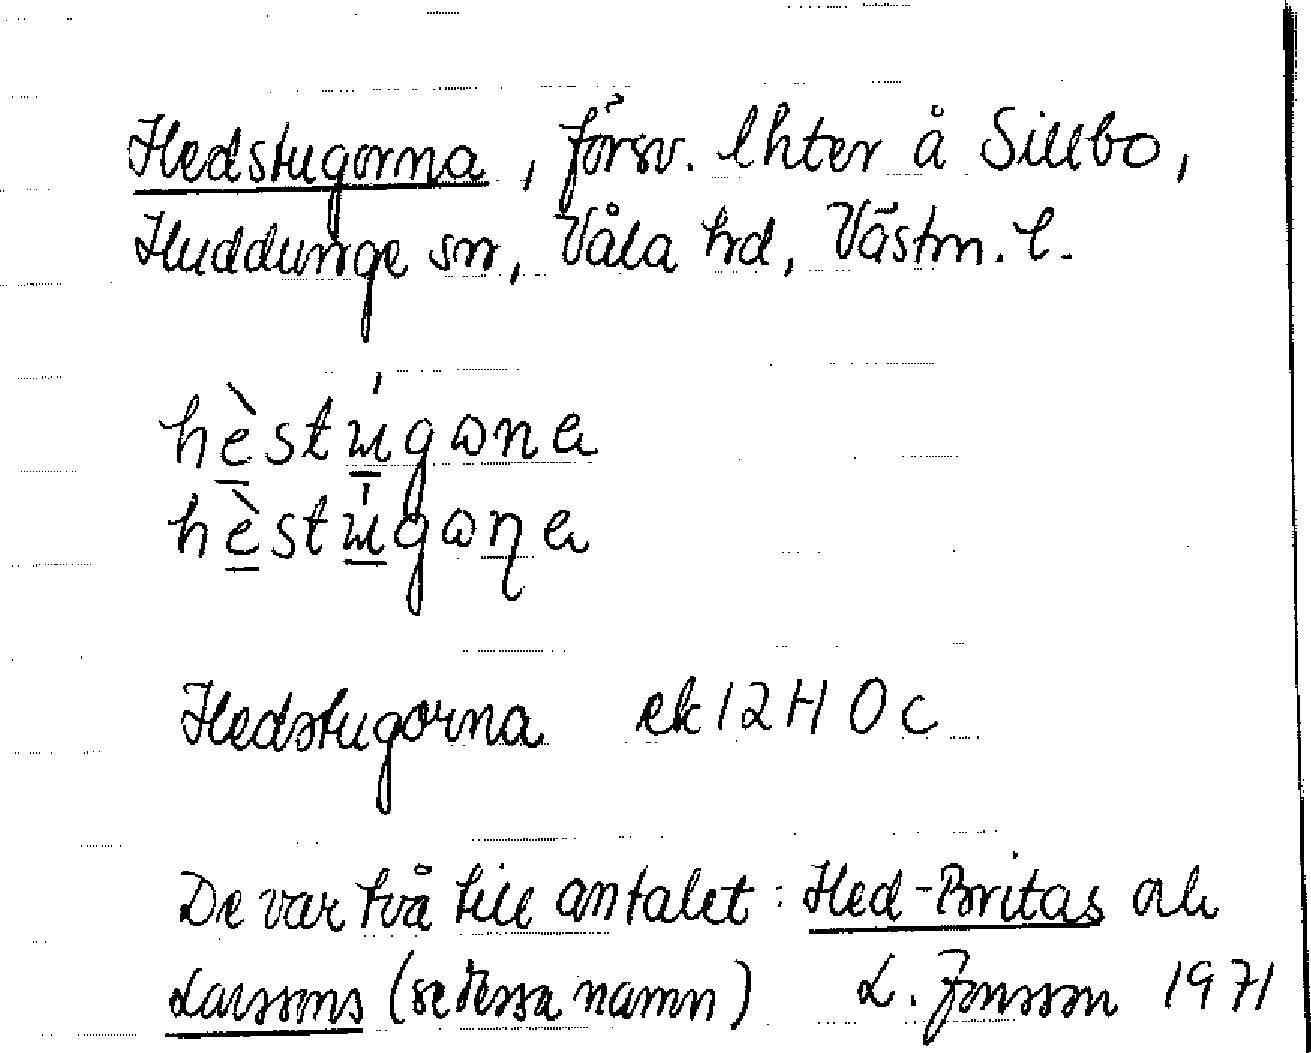 Hedstugorna, försv. lhter å Sillbo,
Huddunge sn, Våla hd, Västm. l.
hèstúgɷna
hèstúgɷņa
Hedstugorna ek 12H 0c
De var två till antalet: Hed-Britas och
Larssons (se dessa namn) L. Jonsson 1971